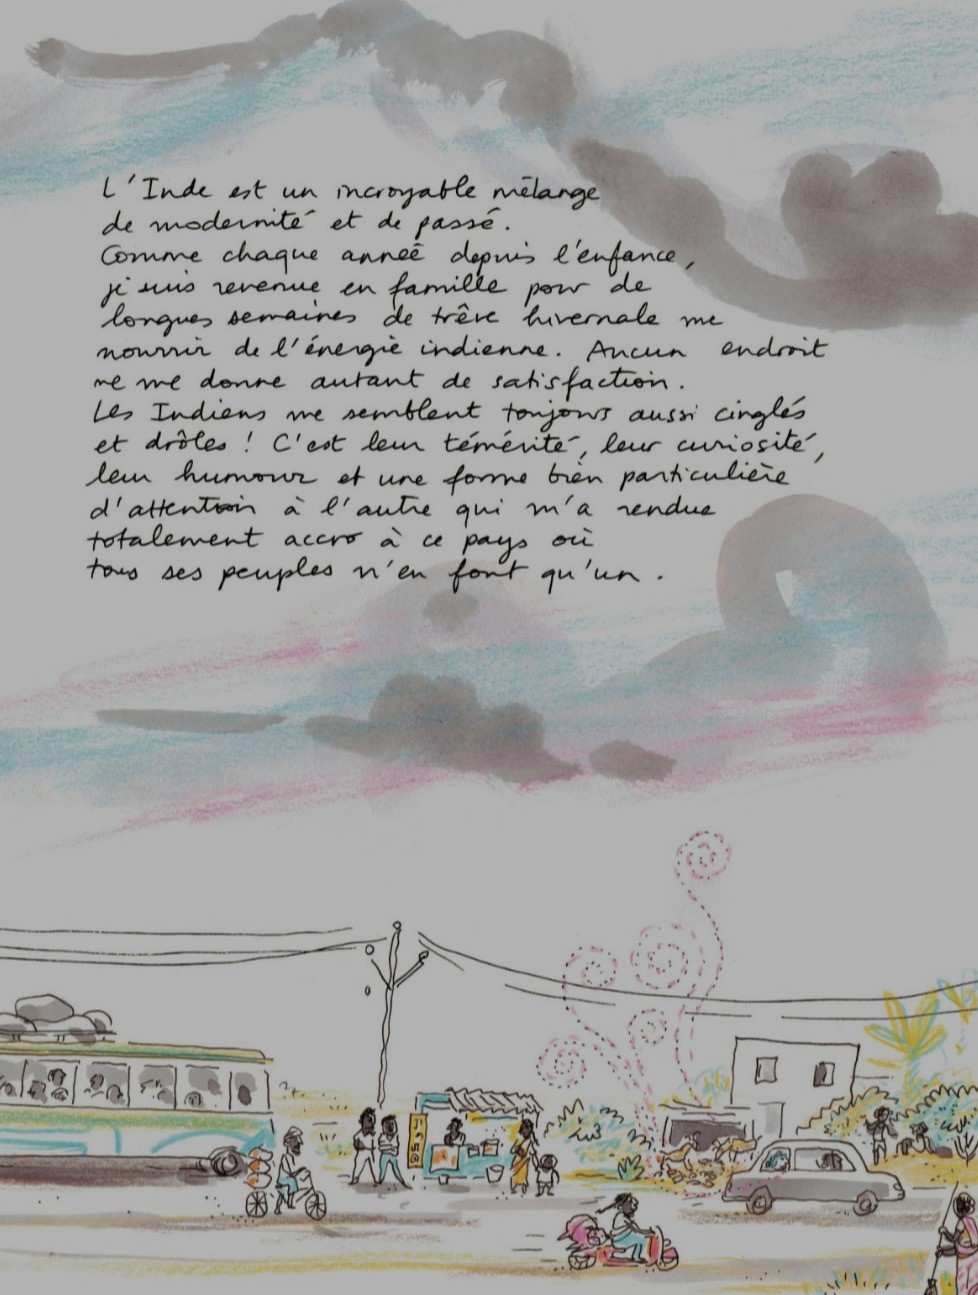 L'Inde est un incroyable mélange
de modernité et de passé.
Comme chaque année depuis l'enfance,
je suis revenue en famille pour de
longues semaines de trêve hivernale me
nourrir de l'énergie indienne. Aucun endroit
ne me donne autant de satisfaction.
Les Indiens me semblent toujours aussi cinglés
et drôles ! C'est leur témérité, leur curiosité,
leur humour et une forme bien particulière
d'attention à l'autre qui m'a rendue
totalement accro à ce pays où
tous ses peuples n'en font qu'un.